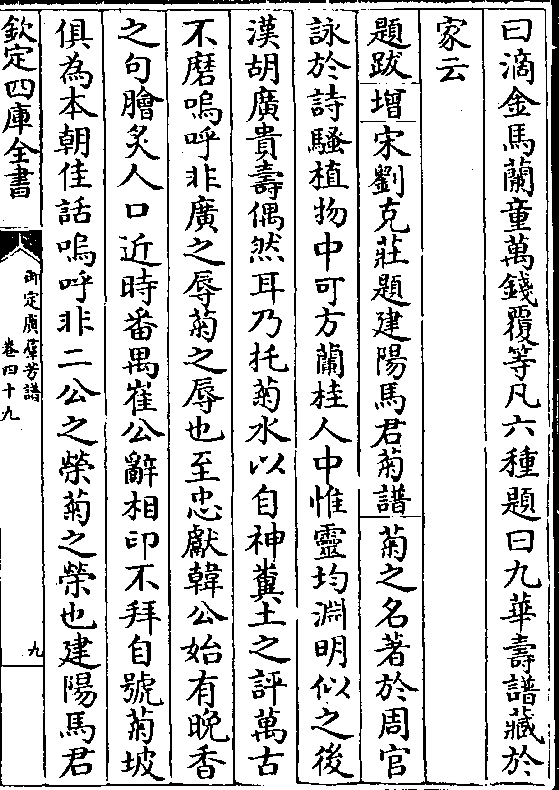 曰滴金馬蘭童萬錢覆等凡六種題曰九華壽譜藏於
家云
題跋增宋劉克莊題建陽馬君菊譜菊之名著於周官
詠於詩騷植物中可方蘭桂人中惟靈均淵明似之後
漢胡廣貴壽偶然耳乃托菊水以自神糞土之評萬古
不磨嗚呼非廣之辱菊之辱也至忠獻韓公始有晚香
之句膾炙人口近時番禺崔公辭相印不拜自號菊坡
俱為本朝佳話嗚呼非二公之榮菊之榮也建陽馬君
欽定四庫全書
御定廣羣芳譜
卷四十九
九